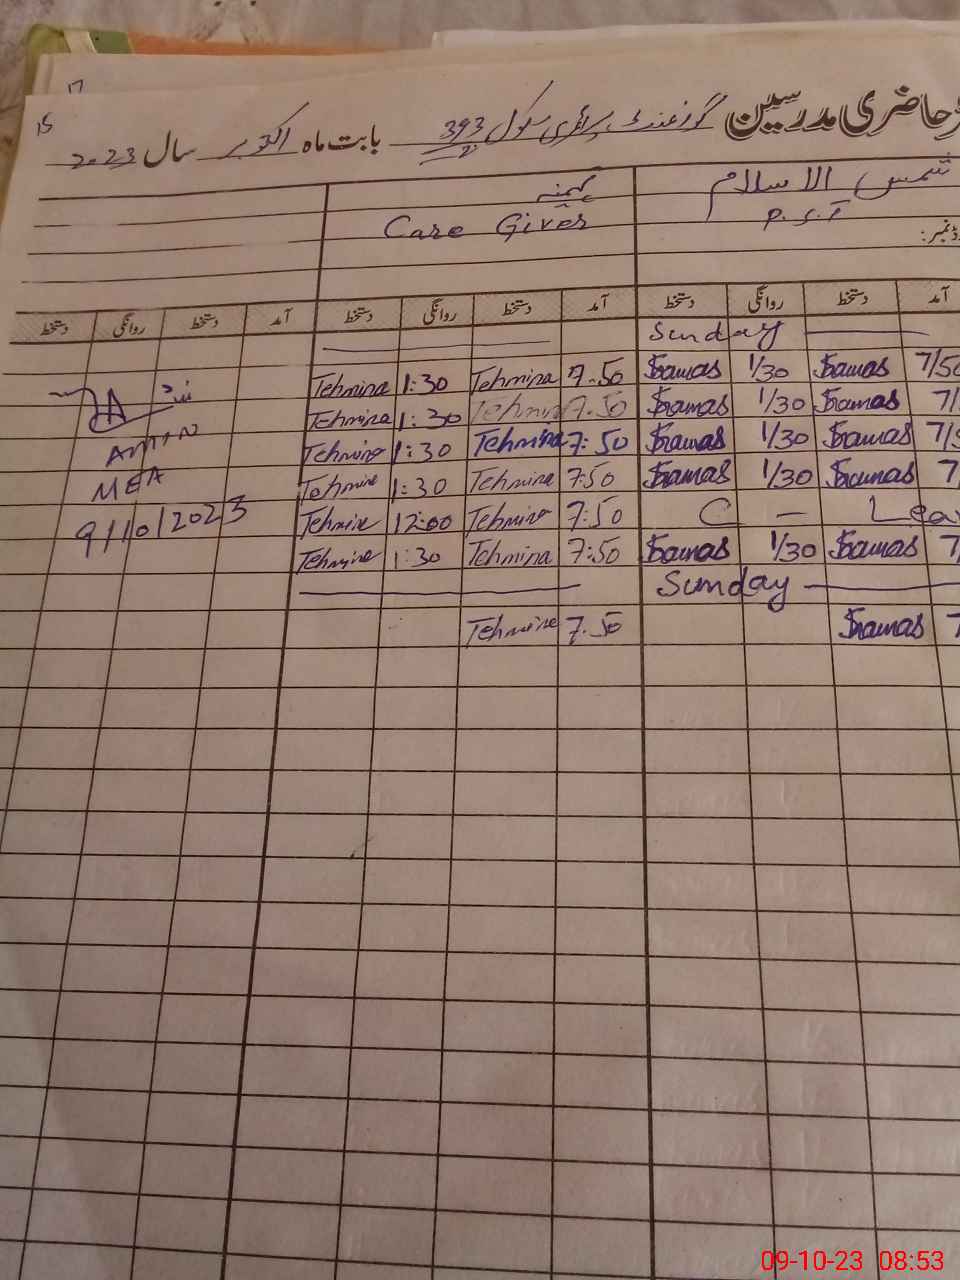 15 17
حاضری مدرسین گورنمنٹ پرائمری سکول 393 بابت ماہ اکتوبر سال 2023
شمس الاسلام
تہمینہ
P.S.T
Care Giver
آمد دستخط روانگی دستخط آمد دستخط روانگی دستخط آمد دستخط روانگی دستخط
Sunday
7/50 1/30 7.50 Tehmina 1:30 Tehmina
7/ 1/30 7.50 Tehmina 1:30 Tehmina
7/5 1/30 7:50 Tehmina 1:30 Tehmina
7/ 1/30 7:50 Tehmina 1:30 Tehmina
C - Lea 7:50 Tehmina 12:00 Tehmina
7/ 1/30 7:50 Tehmina 1:30 Tehmina
Sunday
7 7.50 Tehmina
AMIN
MEA
9/10/2023
09-10-23 08:53